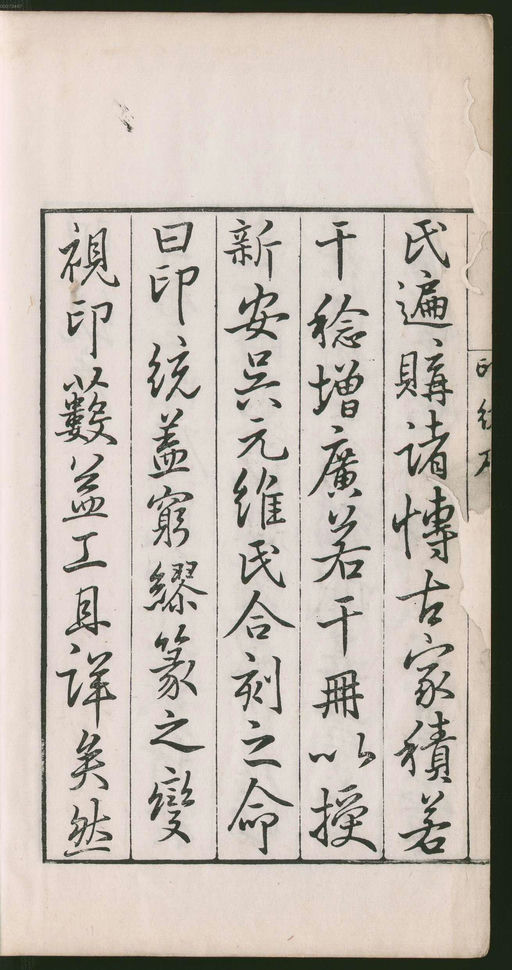 氏遍購諸愽古家積若
干稔增廣若干冊以授
新安吳元維氏合刻之命
曰印統盖窮繆篆之變
視印藪益工且詳矣然